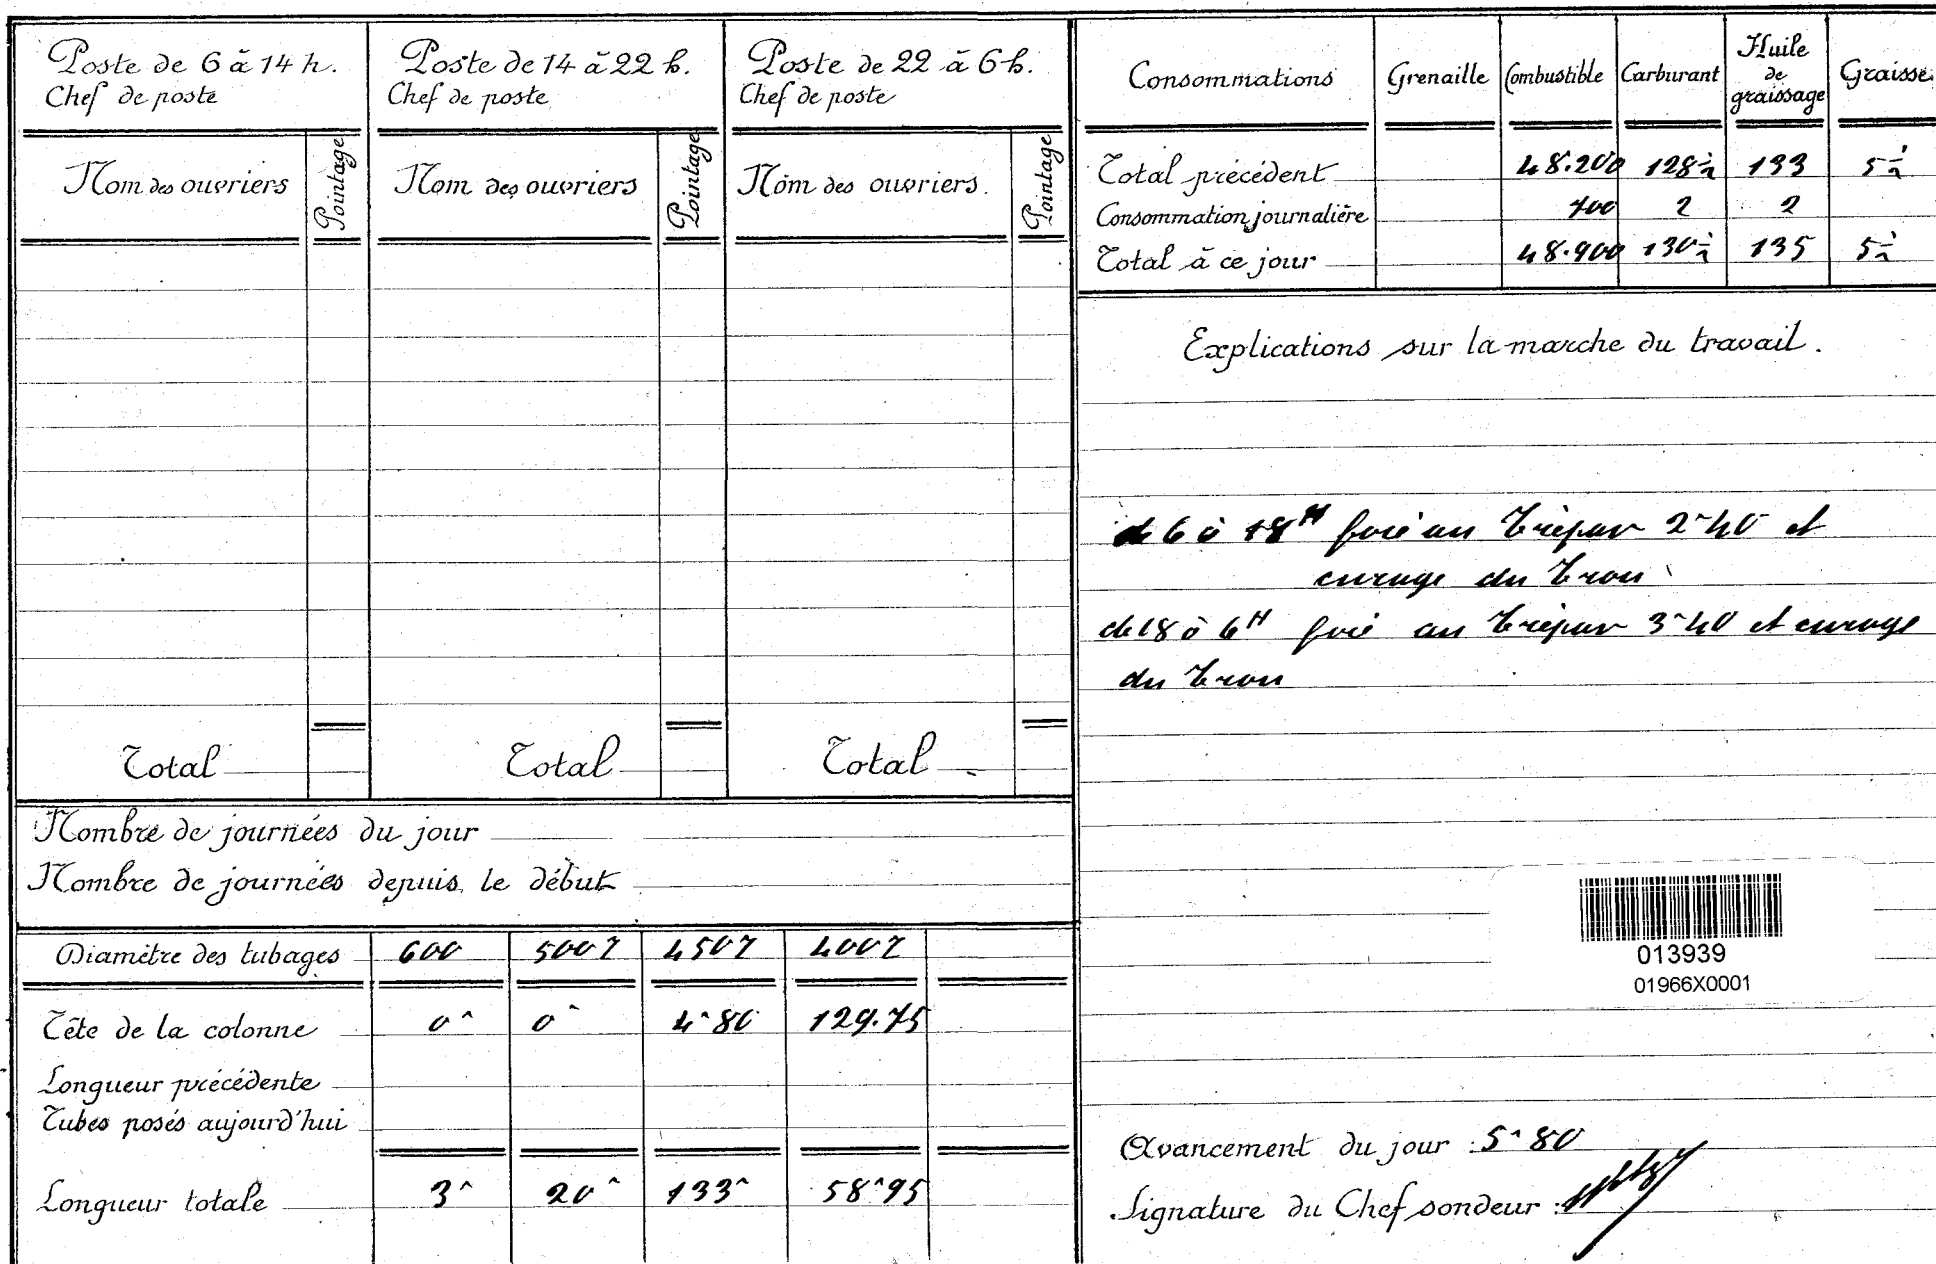 Poste de 6 à 14 h.
Chef de poste
Nom des ouvriers
Pointage
Total
Poste de 14 à 22 h.
Chef de poste
Nom des ouvriers
Pointage
Total
Poste de 22 à 6 h.
Chef de poste
Nom des ouvriers.
Pointage
Total
Nombre de journées du jour
Nombre de journées depuis le début
Diamètre des tubages 600 500 450 400
Tête de la colonne 0m 0m 4m80 129.75
Longueur précédente
Tubes posés aujourd'hui
Longueur totale 3m 20m 133m 58m95
Consommations Grenaille Combustible Carburant Huile de graissage Graisse
Total précédent 48.200 128½ 133 5½
Consommation journalière 700 2 2
Total à ce jour 48.900 130½ 135 5½
Explications sur la marche du travail.
de 6 à 18H foré au trépan 2m40 et
curage du trou
de 18 à 6H foré au trépan 3m40 et curage
du trou
013939
01966X0001
Avancement du jour : 5m80
Signature du Chef sondeur :